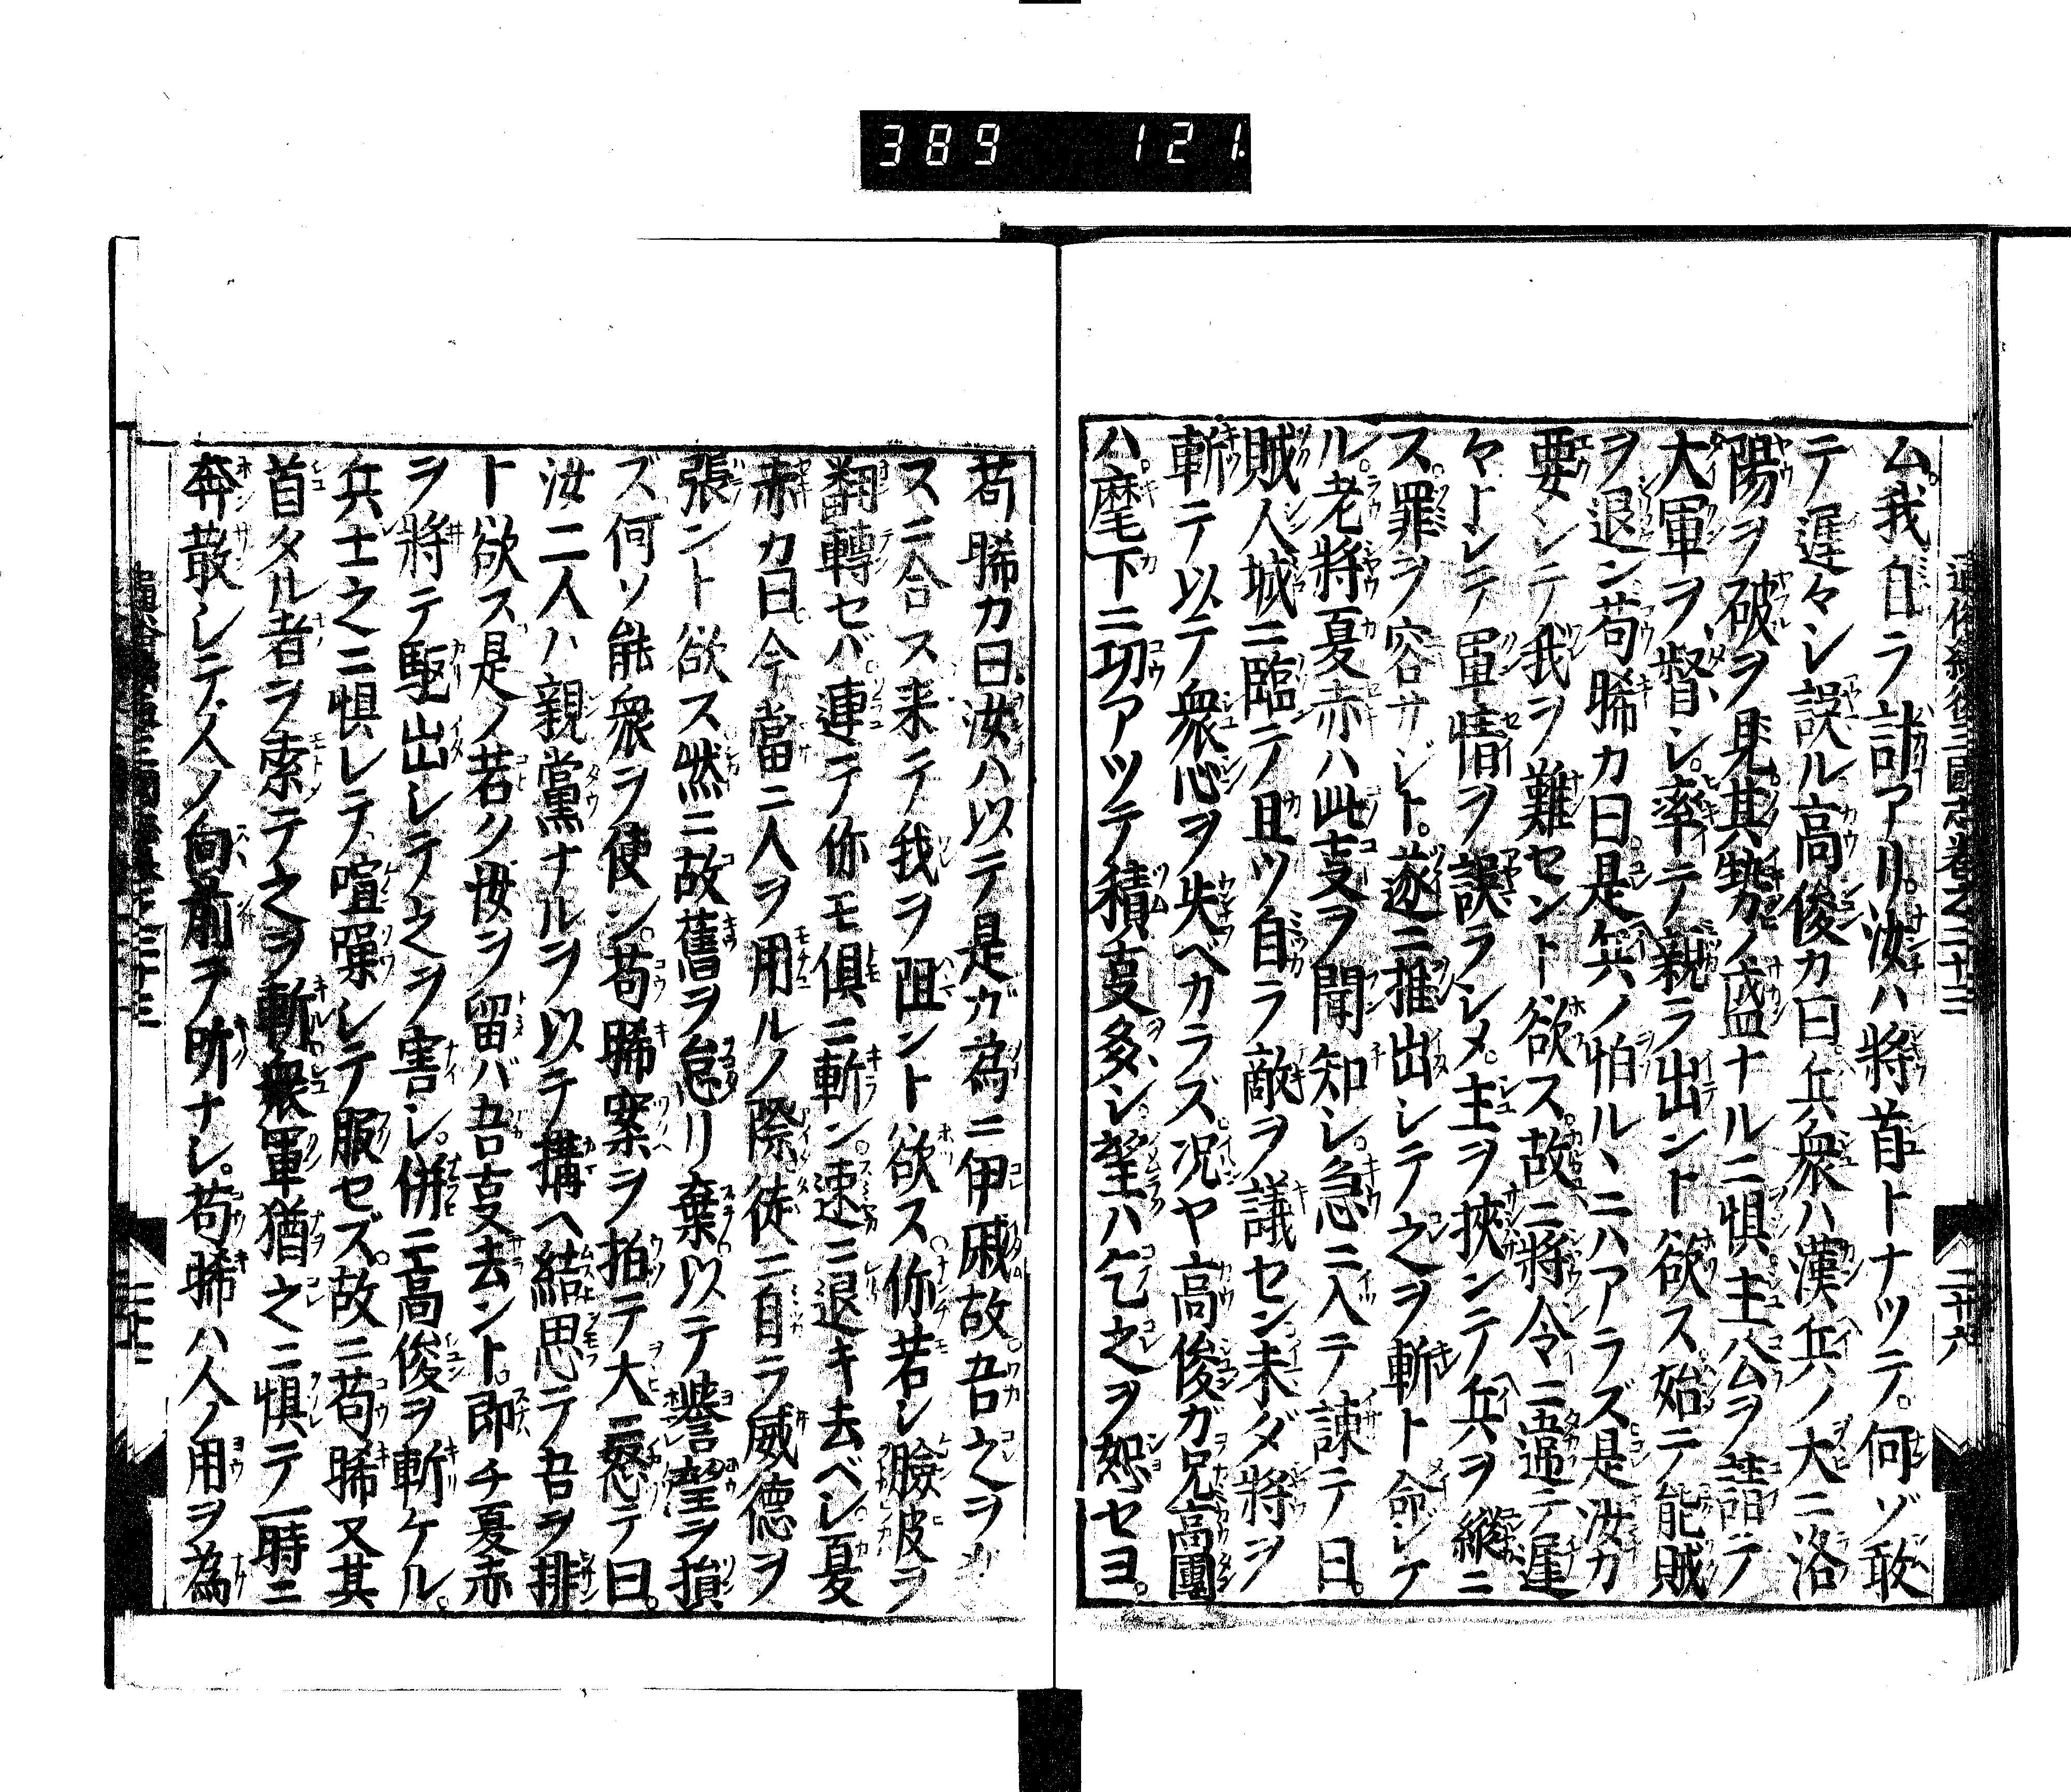 389 121
通俗續後三國志卷之二十三 二十六
ム。我自ラ計アリ。汝ハ將首トナツテ。何ゾ敢
テ遲々シ誤ル高俊カ曰兵衆ハ漢兵ノ大ニ洛
陽ヲ破ヲ見其勢ノ盛ナルニ惧主公ヲ請テ
大軍ヲ督シ。率テ親ラ出ント欲ス始テ能賊
ヲ退ン苟晞カ曰。是兵ノ怕ルヽニハアラズ是汝カ
要シテ我ヲ難セント欲ス。故ニ將令ニ違テ遲
々トシテ軍情ヲ誤ラシメ。主ヲ挾ンテ兵ヲ縱ニ
ス。罪ヲ容サレト。遂ニ推出シテ之ヲ斬ト命シケ
ル。老將夏赤ハ此叓ヲ聞知シ。急ニ入テ諫テ曰。
賊人城ニ臨テ且ツ自ラ敵ヲ議セン未ダ將ヲ
斬テ以テ衆心ヲ失ベカラズ。况ヤ高俊ガ兄高團
ハ麾下ニ功アツテ積叓多シ望ハ乞之ヲ恕セヨ。
苟晞カ曰。汝ハ以テ是ガ為ニ伊戚故。吾之ヲ
スニ合ス来テ我ヲ阻ント欲ス。你若シ臉皮ヲ
翻轉セバ。連テ你モ俱ニ斬ン。速ニ退キ去ベシ夏
赤カ曰今當ニ人ヲ用ルノ際徒ニ自ラ威德ヲ
張ント欲ス然ニ故舊ヲ怠リ棄以テ譽望ヲ損
ズ何ソ能衆ヲ使ン。苟晞案ヲ拍テ大ニ怒テ曰。
汝二人ハ親黨ナルヲ以テ搆ヘ結思テ吾ヲ排
ト欲ス是ノ若ク汝ヲ留バ吾叓去ント。即チ夏赤
ヲ將テ駆出シテ之ヲ害シ。併ニ高俊ヲ斬ケル。
兵士之ニ惧レテ喧譟シテ服セズ。故ニ苟晞又其
首タル者ヲ索テ之ヲ斬衆軍猶之ニ惧テ一時ニ
奔散シテ人ノ向前ヲ听ナシ。苟晞ハ人ノ用ヲ為